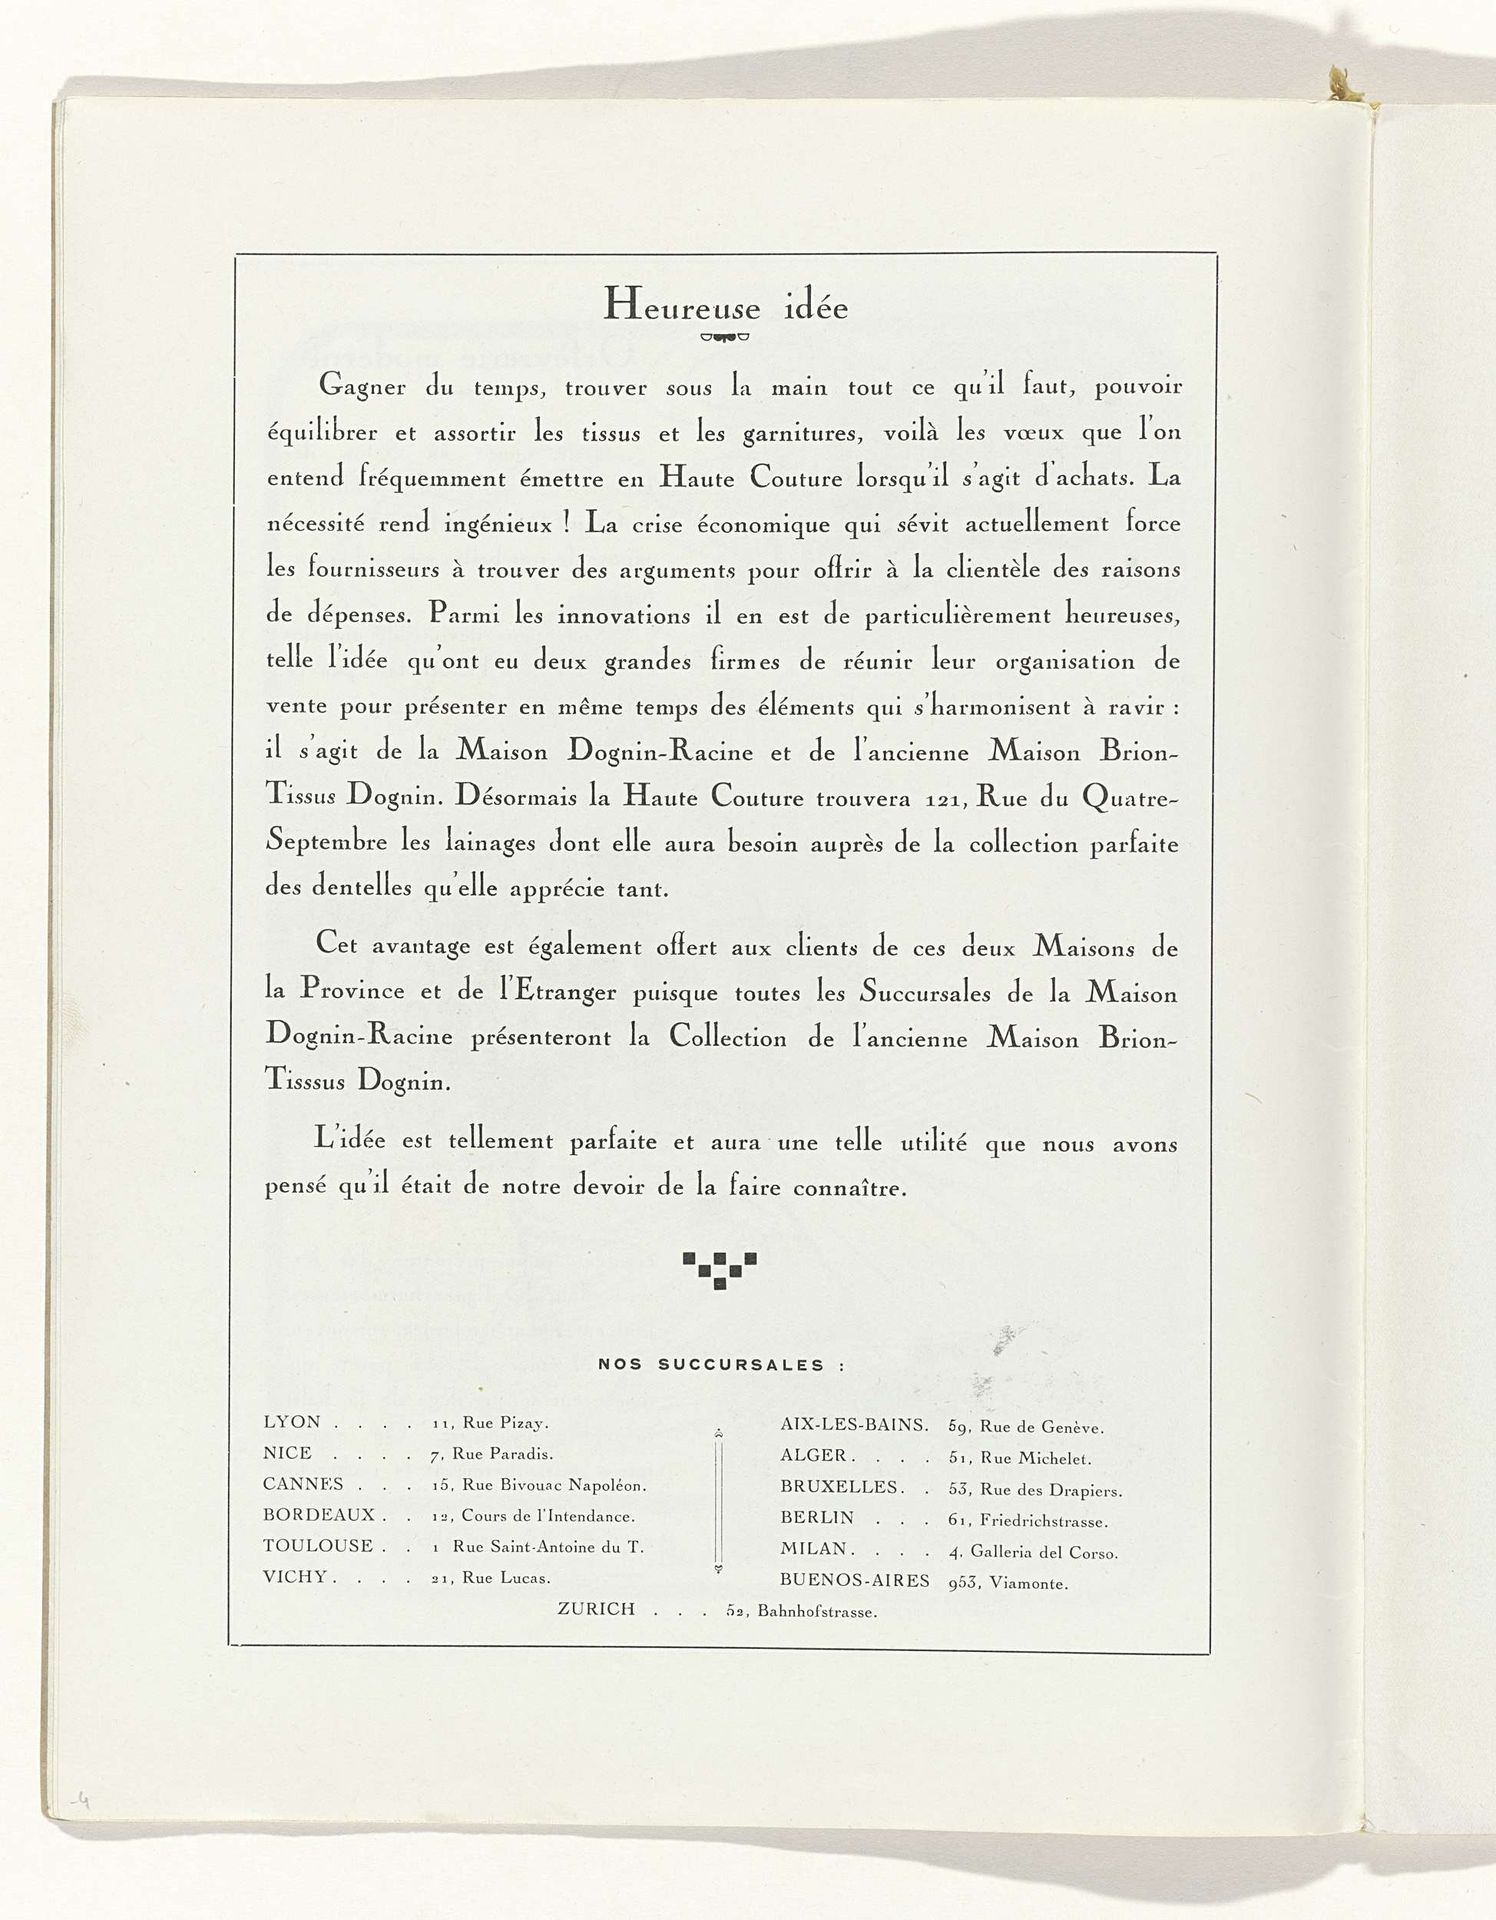 Heureuse idée
Gagner du temps, trouver sous la main tout ce qu'il faut, pouvoir
équilibrer et assortir les tissus et les garnitures, voilà les vœux que l'on
entend fréquemment émettre en Haute Couture lorsqu'il s'agit d'achats. La
nécessité rend ingénieux ! La crise économique qui sévit actuellement force
les fournisseurs à trouver des arguments pour offrir à la clientèle des raisons
de dépenses. Parmi les innovations il en est de particulièrement heureuses,
telle l'idée qu'ont eu deux grandes firmes de réunir leur organisation de
vente pour présenter en même temps des éléments qui s'harmonisent à ravir :
il s'agit de la Maison Dognin-Racine et de l'ancienne Maison Brion-
Tissus Dognin. Désormais la Haute Couture trouvera 121, Rue du Quatre-
Septembre les lainages dont elle aura besoin auprès de la collection parfaite
des dentelles qu'elle apprécie tant.
Cet avantage est également offert aux clients de ces deux Maisons de
la Province et de l'Etranger puisque toutes les Succursales de la Maison
Dognin-Racine présenteront la Collection de l'ancienne Maison Brion-
Tisssus Dognin.
L'idée est tellement parfaite et aura une telle utilité que nous avons
pensé qu'il était de notre devoir de la faire connaître.
NOS SUCCURSALES :
LYON . . . . 11, Rue Pizay.
NICE . . . . 7, Rue Paradis.
CANNES . . . 15, Rue Bivouac Napoléon.
BORDEAUX . . 12, Cours de l'Intendance.
TOULOUSE . . 1 Rue Saint-Antoine du T.
VICHY . . . . 21, Rue Lucas.
AIX-LES-BAINS. 59, Rue de Genève.
ALGER . . . . 51, Rue Michelet.
BRUXELLES. . 53, Rue des Drapiers.
BERLIN . . . 61, Friedrichstrasse.
MILAN . . . . 4, Galleria del Corso.
BUENOS-AIRES 953, Viamonte.
ZURICH . . . 52, Bahnhofstrasse.
-4